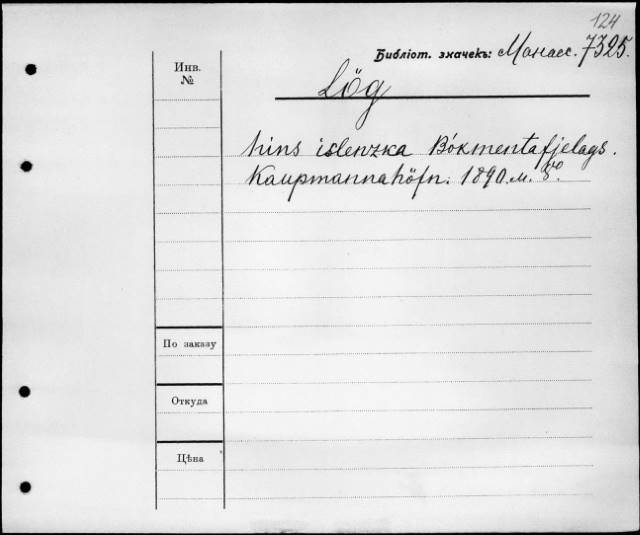 124
Библіот. значекъ: Монасс. 7325.
Инв.
№
Lög
hins islenzka Bókmentafjelags.
Kaupmannahöfn. 1890. м. 8º.
По заказу
Откуда
Цѣна